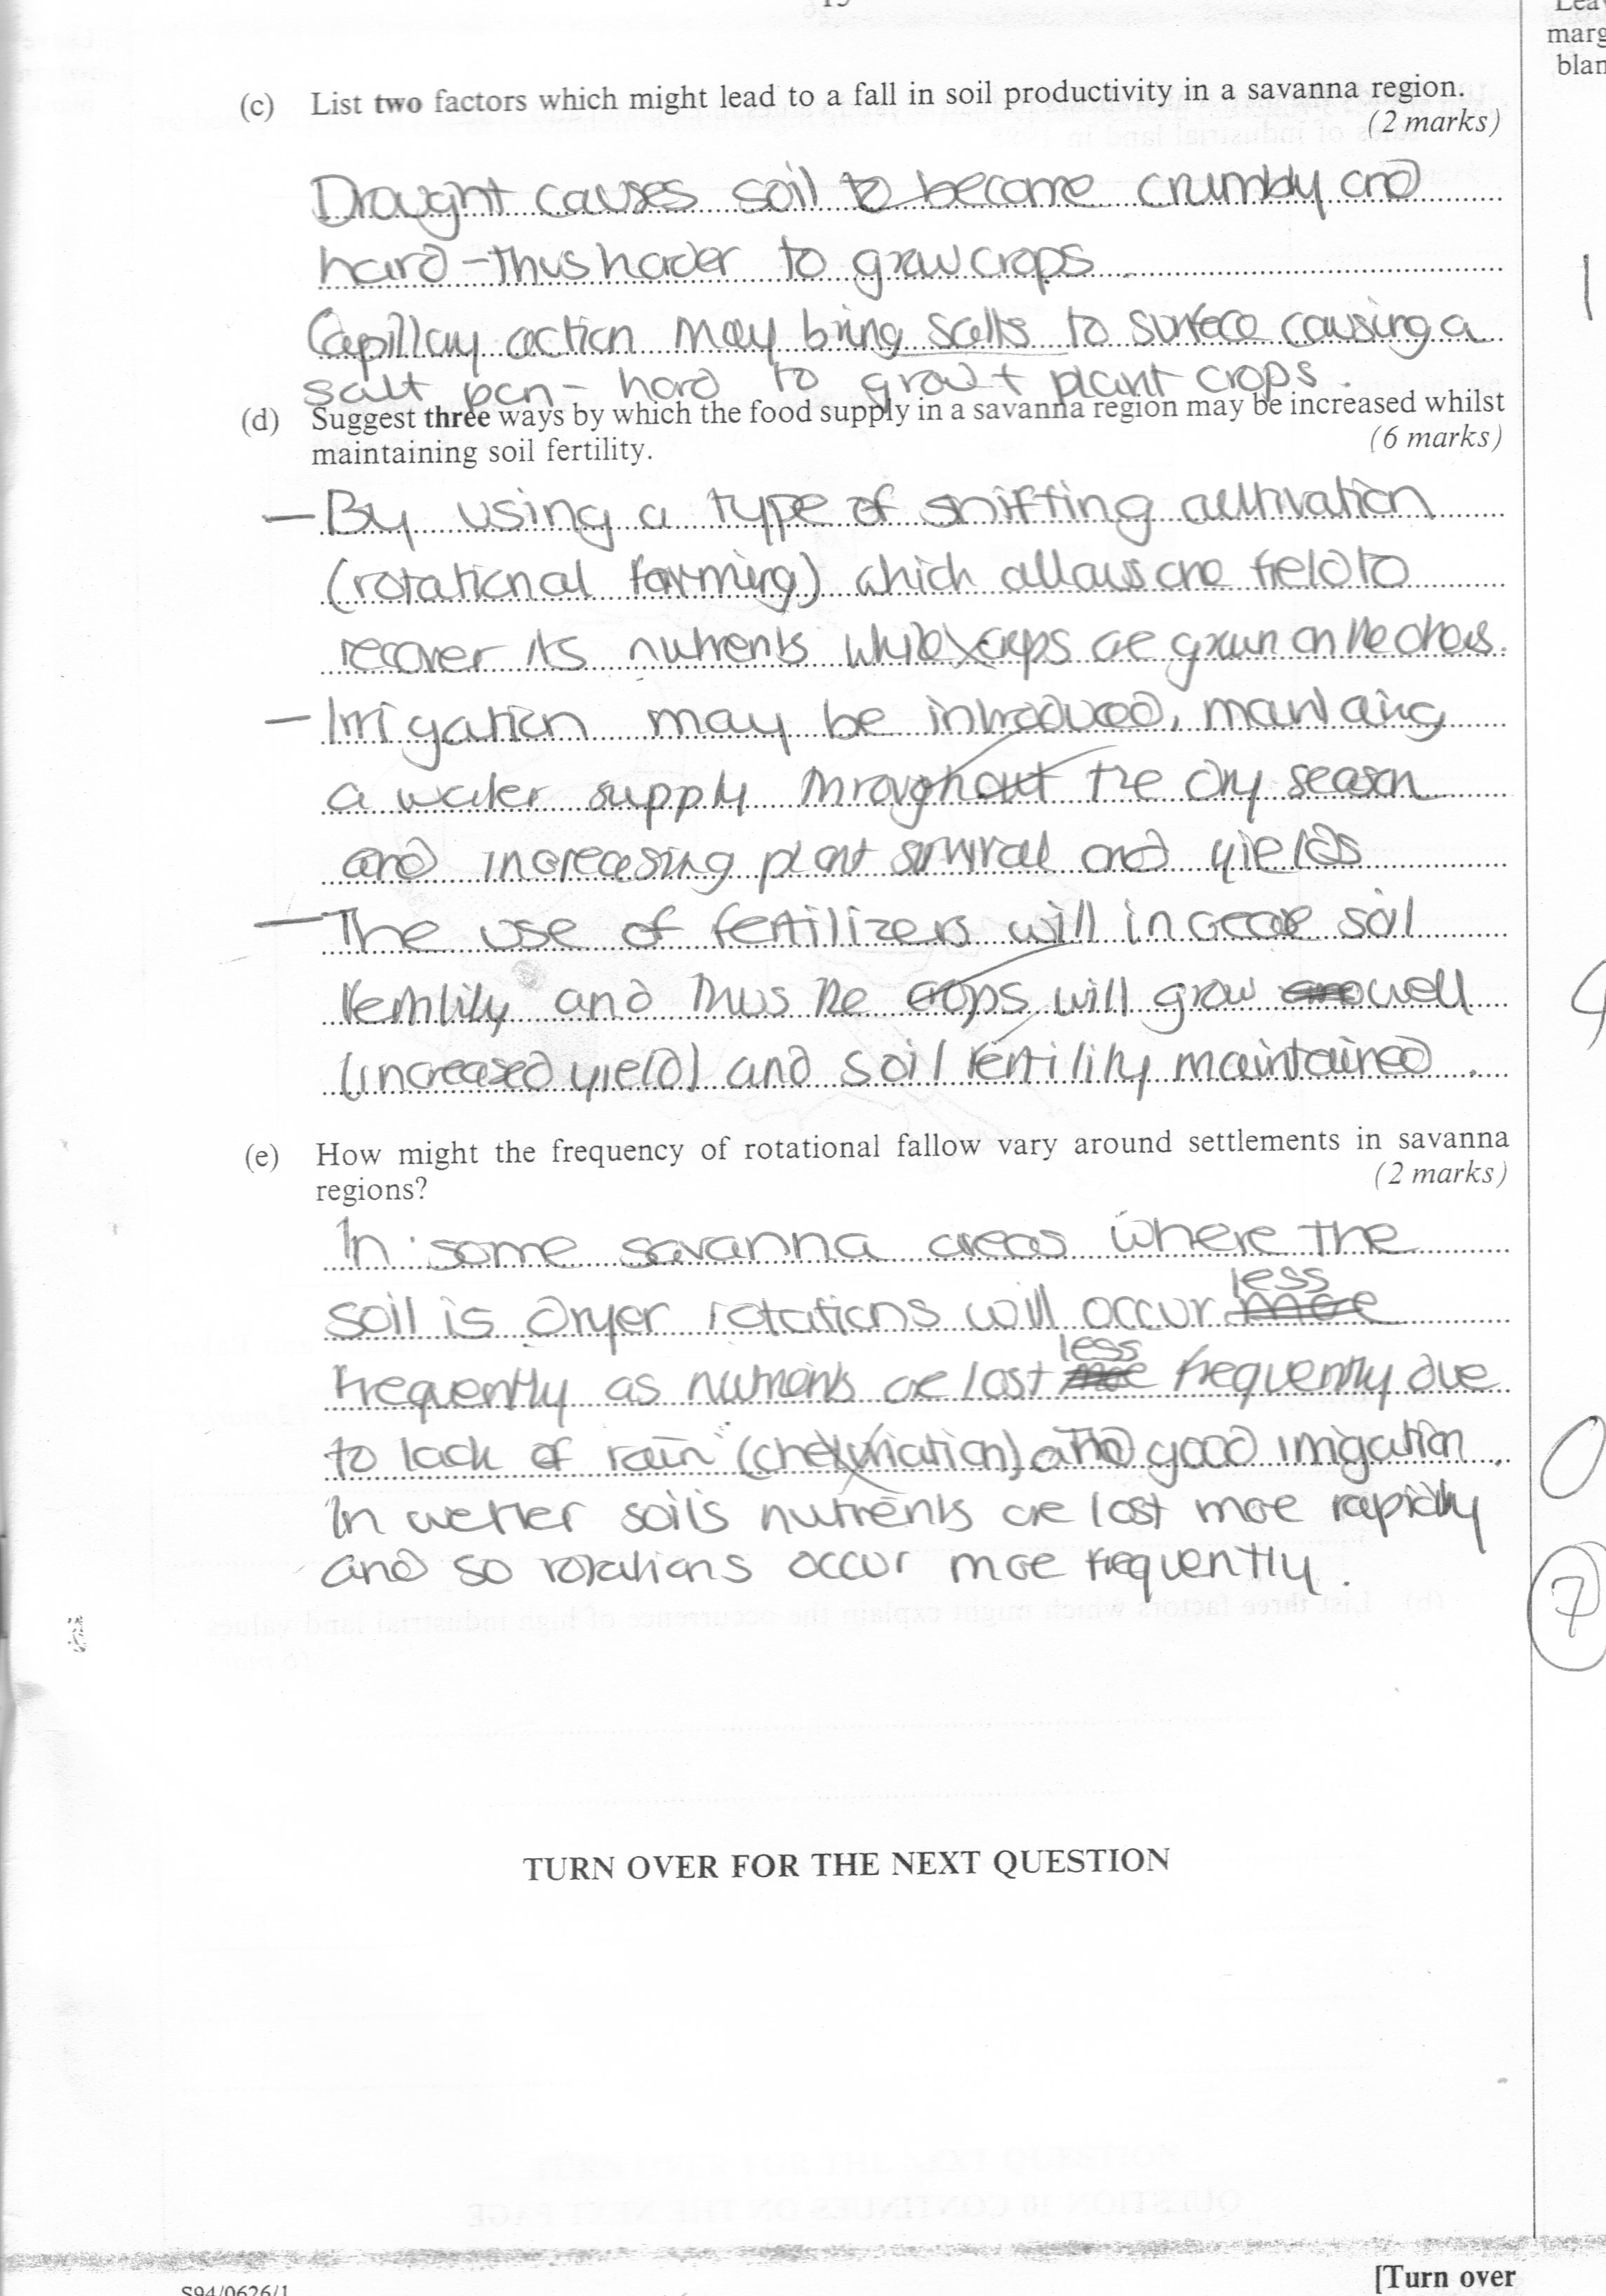 Lea
marg
blan
(c) List two factors which might lead to a fall in soil productivity in a savanna region.
(2 marks)
Drought causes soil to become crumbly and
hard - thus harder to grow crops
1
Capillary action may bring salts to surface causing a
salt pan - hard to grow + plant crops.
(d) Suggest three ways by which the food supply in a savanna region may be increased whilst
maintaining soil fertility.
(6 marks)
- By using a type of shifting cultivation
(rotational farming) which allows one field to
recover its nutrients while crops are grown on the others.
- Irrigation may be introduced,
a water supply throughout the dry season
and increasing plant survival and yields
- The use of fertilizers will increase soil
fertility and thus the crops will grow well
(increased yield) and soil fertility maintained.
(e) How might the frequency of rotational fallow vary around settlements in savanna
regions?
(2 marks)
In some savanna areas where the
soil is dryer rotations will occur less
frequently as nutrients are lost less frequently due
to lack of rain and good irrigation.
0
In wetter soils nutrients are lost more rapidly
and so rotations occur more frequently.
7
TURN OVER FOR THE NEXT QUESTION
[Turn over
S94/0626/1